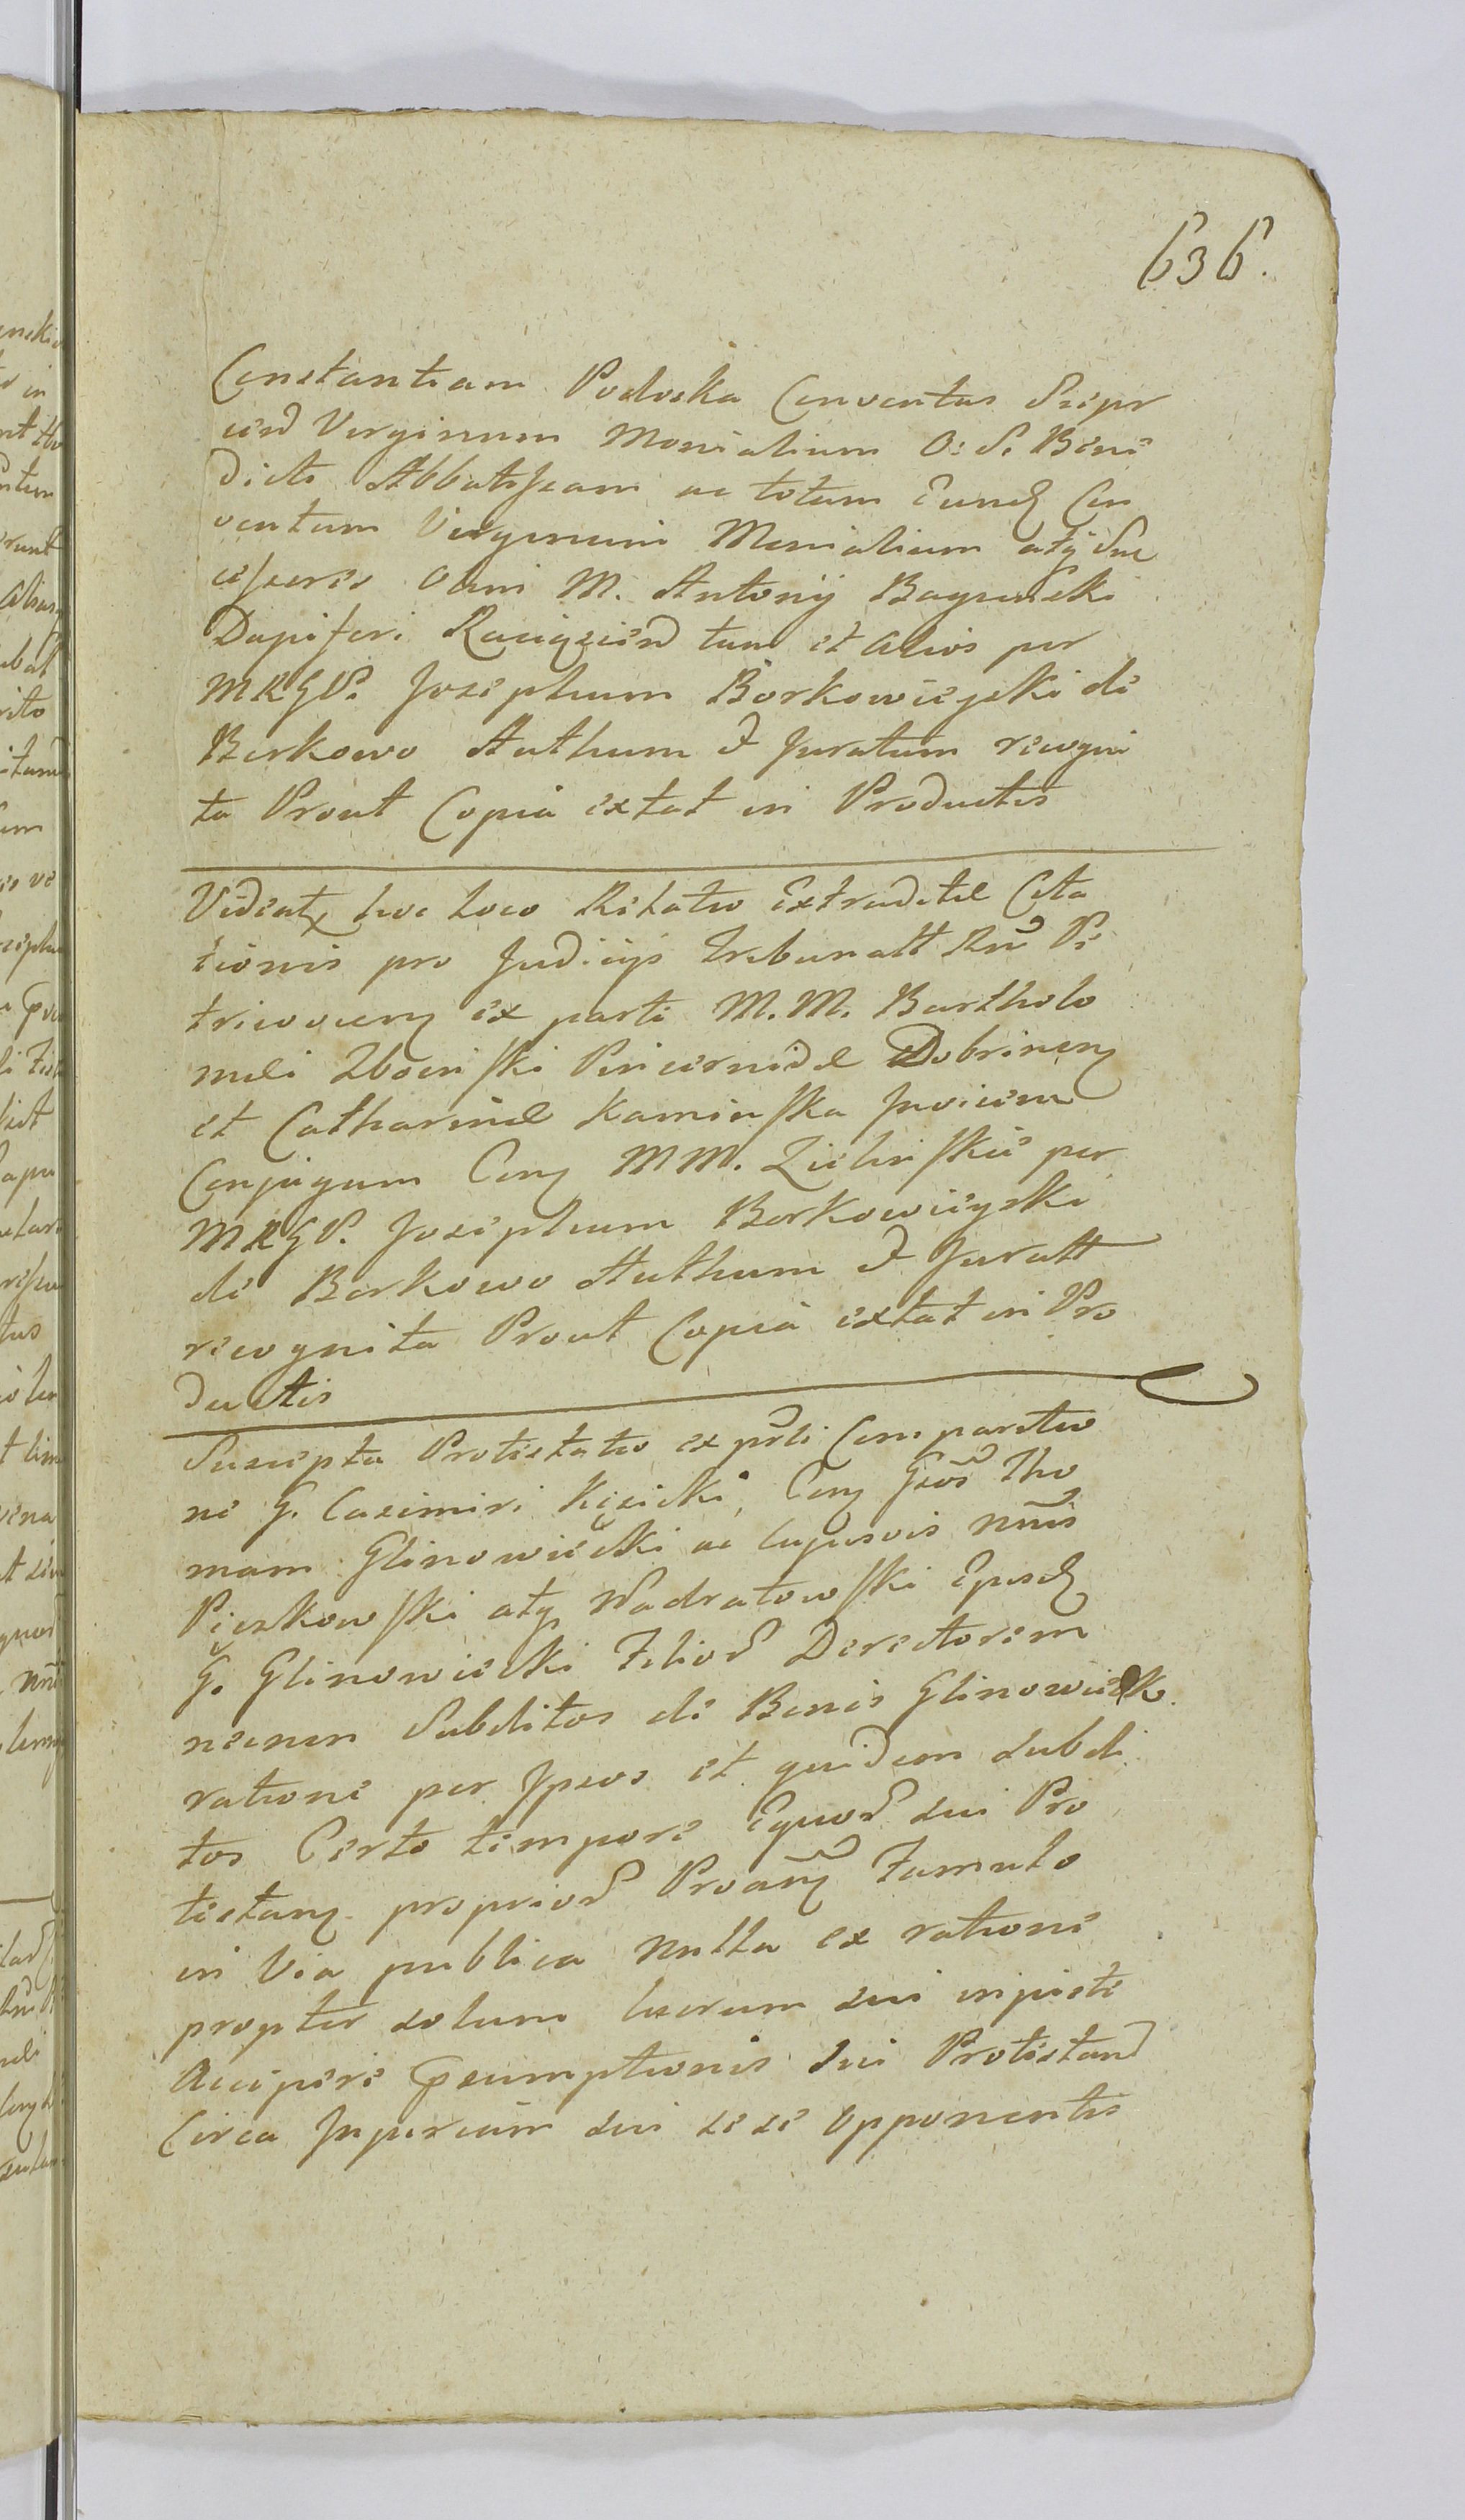 636.
Constantiam Podoska Conventus Sierpr
cien Virginum Monialium O: S. Bene
dicti Abbatissam ac totum Eund Con
ventum Virginum Monialium atq Suc
cessores olim M. Antonij Bagieński
Dapiferi Raciązien tum et alios per
MRGP. Josephum Borkowięcki de
Borkowo Authum & Juratum recogni
ta Prout Copia extat in Productis
Videat hoc loco Relatio Extraditæ Cita
tionis pro Judicijs Tribunall Rni Pe
tricovien ex parte M. M. Bartholo
mæi Zboinski Pincernidæ Dobrinen
et Catharinæ Kaminska Invicem
Conjugum Con MM. Zielinskie per
MRGP. Josephum Borkowięcki
de Borkowo Authum & Juratt
recognita Prout Copia extat in Pro
ductis
Suscepta Protestatio ex psli Comparitio
ne G. Casimiri Kęsicki, Con Gsos Tho
mam Glinowiecki ac cujusvis nnis
Pięzkowski atq Nadratowski Ejusd
G. Glinowiecki Filior Derectorem
necnon Subditos de Bonis Glinowiecko
ratione per Ipsos et quidem subdi
tos Certo tempore Equor sui Pro
testan proprior Proan Famulo
in Via publica nulla ex ratione
propter solum lucrum sui injuste
Accipere psumptionis sui Protestan
Circa Injuriam sui sese opponentis